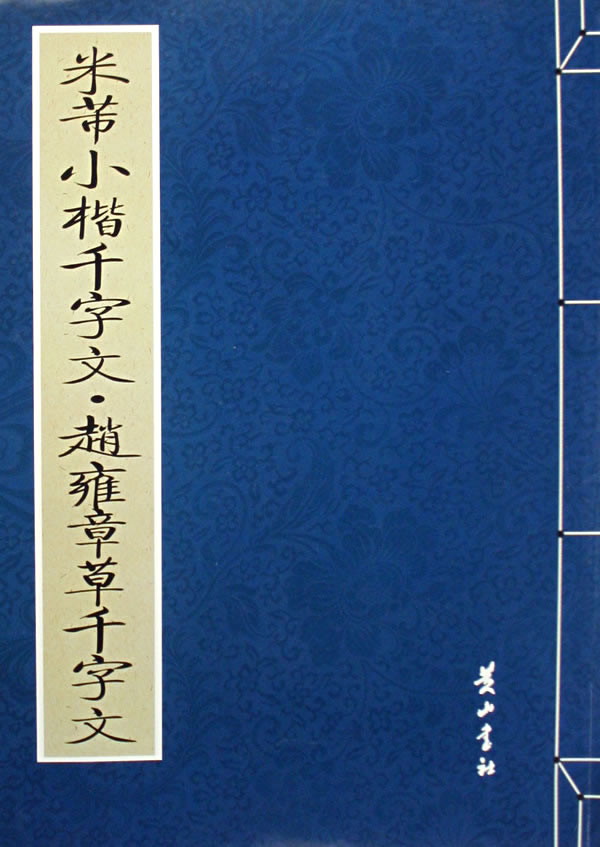 米芾小楷千字文·趙雍章草千字文
黄山書社